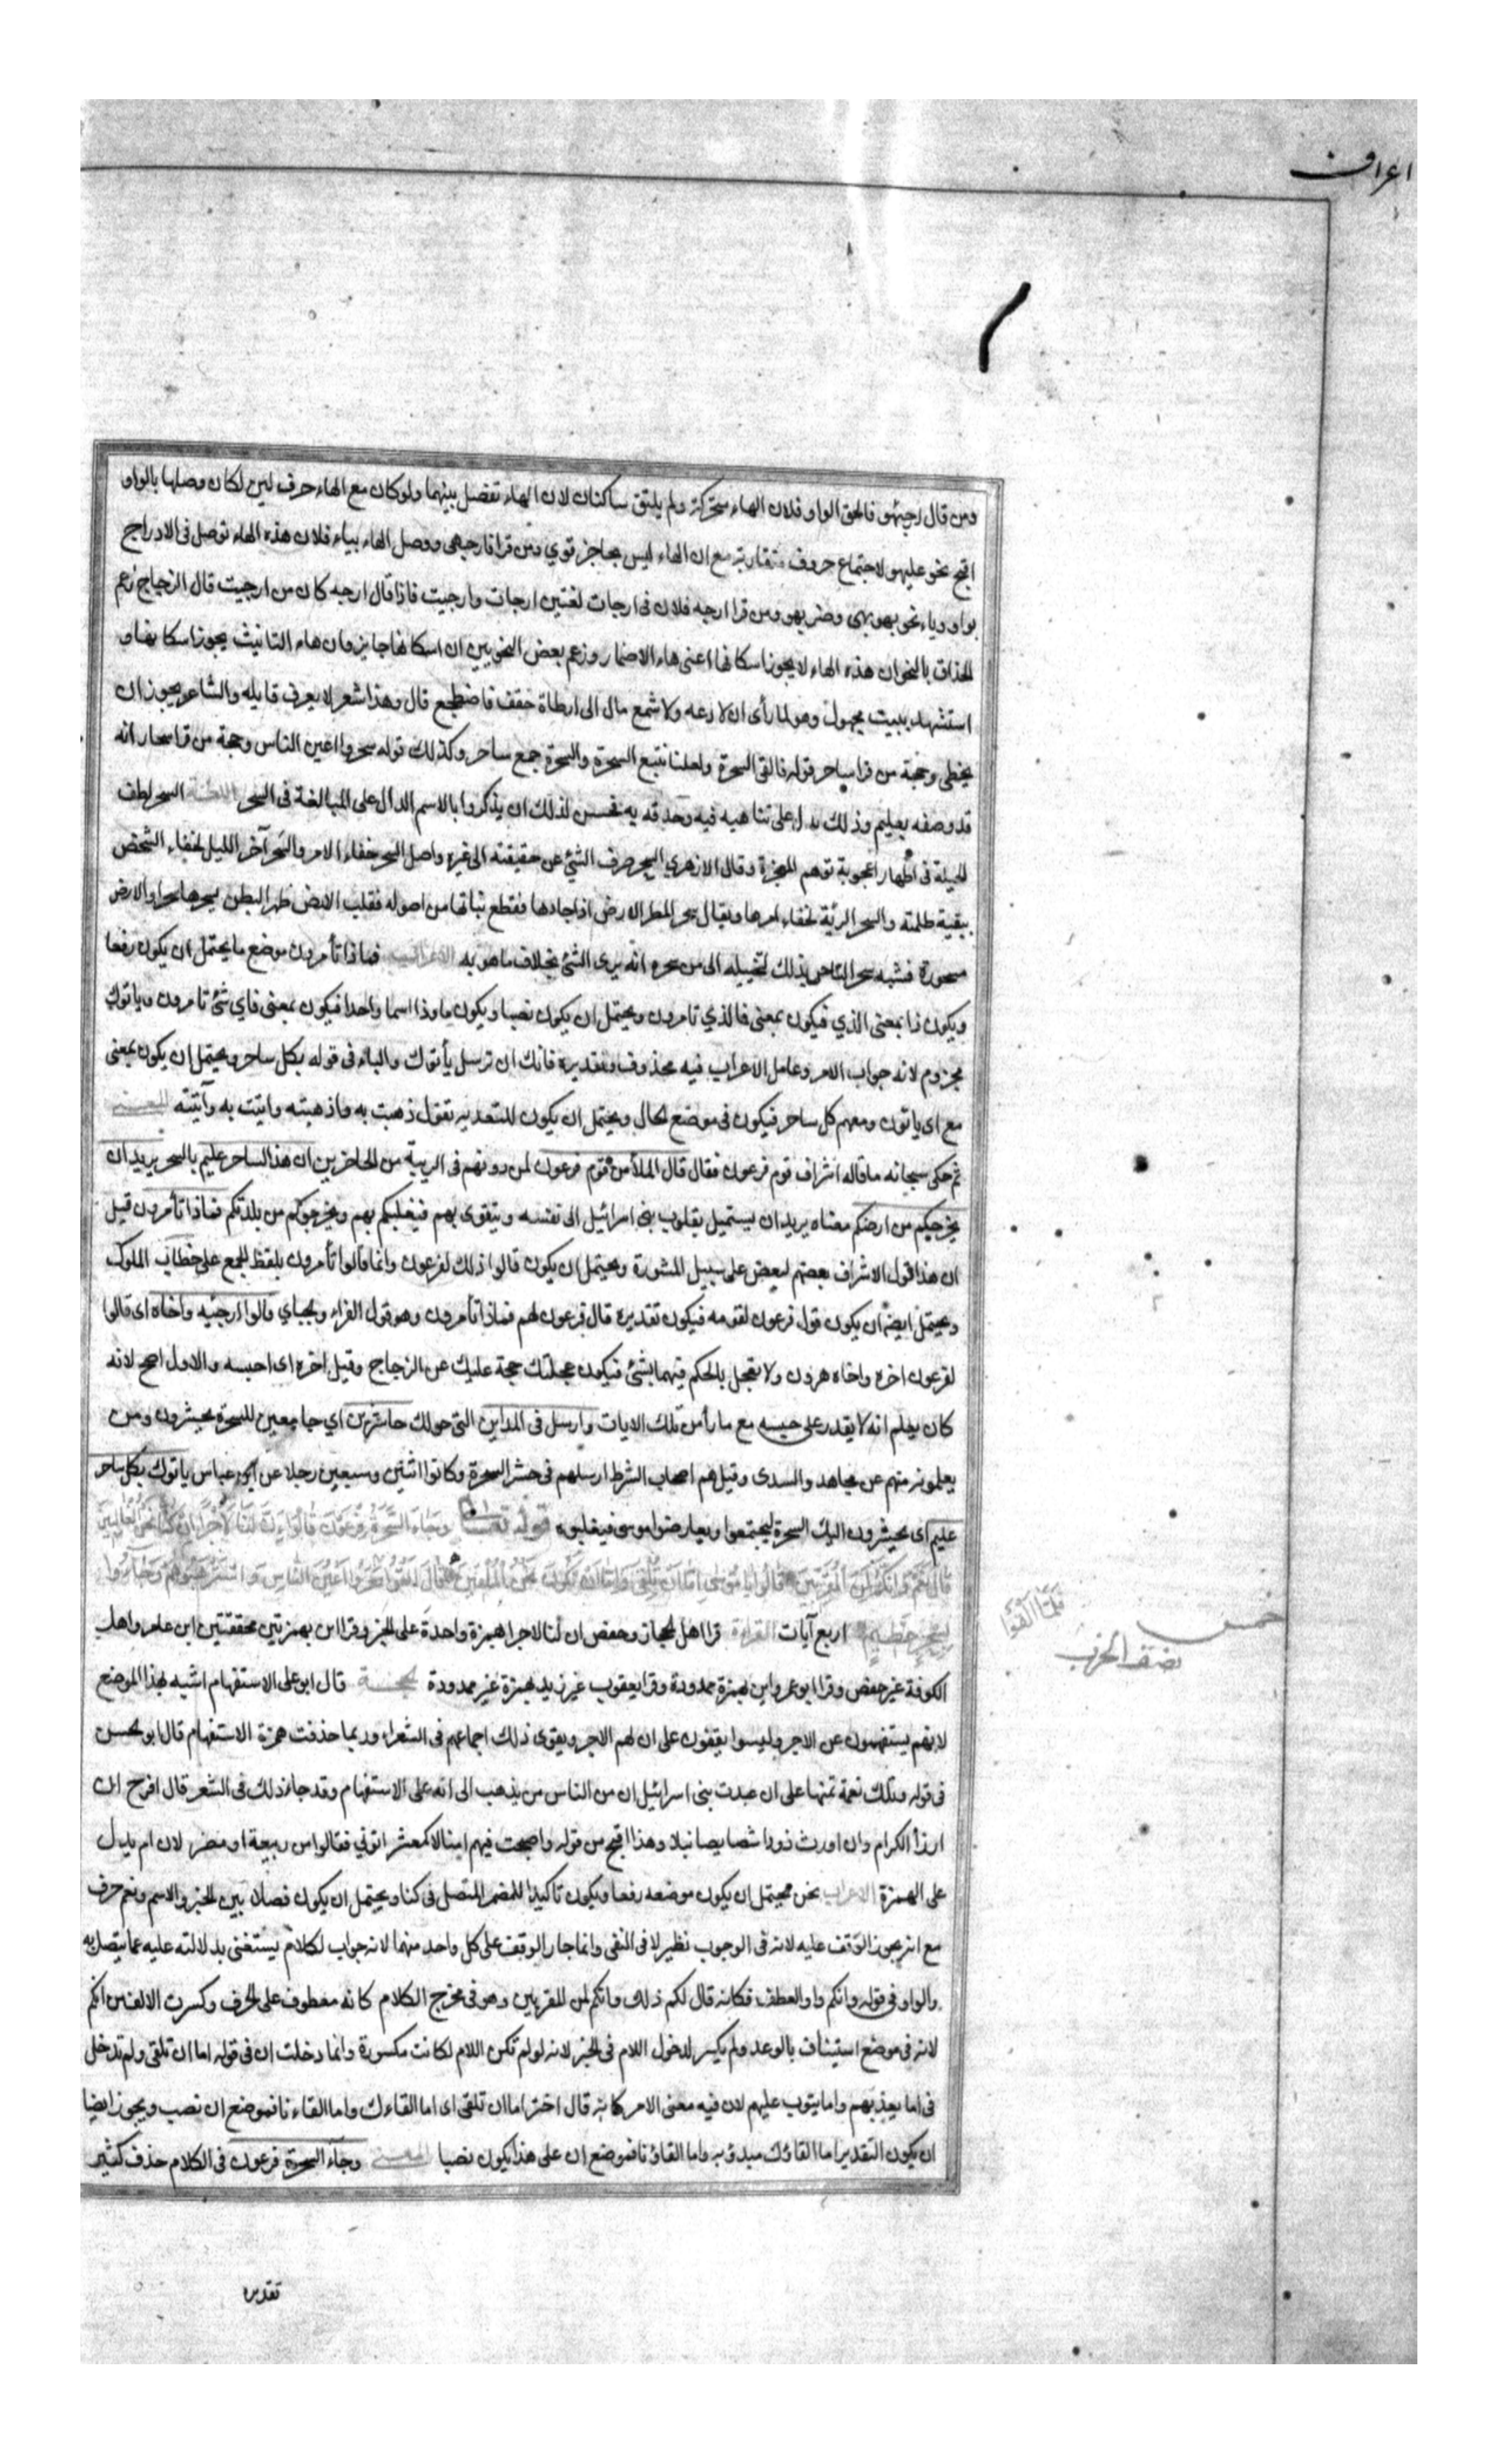 اعراف
ومن قال ارجئهو فالحق الواو فلان الهاء متحركة ولم يلتق ساكنان لان الهاء تفصل بينهما ولو كان مع الهاء حرف لين لكان وصلها بالواو
اقبح نحو عليهو لاجتماع حروف متقاربة مع ان الهاء ليس بحاجز قوي ومن قرا فارجيهى ووصل الهاء بياء فلان هذه الهاء توصل فى الادراج
بواو وياء نحو بهو بهى وضربهو ومن قرا ارجه فلان فى ارجات لغتين ارجات وارجيت فاذا قال ارجه كان من ارجيت قال الزجاج زعم
الحذاق بالنحو ان هذه الهاء لا يجوز اسكانها اعنى هاء الاضمار وزعم بعض النحويين ان اسكانها جايز وان هاء التانيث يجوز اسكانها و
استشهد ببيت مجهول وهو لما رأى ان لا دعه ولا شبع مال الى ارطاة حقف فاضطجع قال وهذا شعر لا يعرف قايله والشاعر يجوز ان
يخطى وحجة من قرا ساحر قوله فالقى السحرة ولعلنا نتبع السحرة والسحرة جمع ساحر وكذلك قوله سحروا اعين الناس وحجة من قرا سحار انه
قد وصفه بعليم وذلك يدل على تناهيه فيه وحذقه به فحسن لذلك ان يذكروا بالاسم الدال على المبالغة فى السحر اللغة السحر لطف
الحيلة فى اظهار اعجوبة توهم المعجزة وقال الازهري السحر صرف الشئ عن حقيقته الى غيره واصل السحر خفاء الامر والسحر آخر الليل لخفاء الشخص
ببقية ظلمته والسحر الرئة لخفاء امرها ويقال سحر المطر الارض اذا جادها فقطع نباتها من اصوله فقلب الارض ظهر البطن يسحرها سحرا والارض
مسحورة فشبه سحر الساحر بذلك لتخييله الى من سحره انه يرى الشئ بخلاف ما هو به الاعراب فماذا تأمرون موضع ما يحتمل ان يكون رفعا
ويكون ذا بمعنى الذي فيكون بمعنى فما الذي تامرون ويحتمل ان يكون نصبا ويكون ما وذا اسما واحدا فيكون بمعنى فاي شئ تامرون وياتوك
مجزوم لانه جواب الامر وعامل الاعراب فيه محذوف وتقديره فانك ان ترسل يأتوك والباء فى قوله بكل ساحر ويحتمل ان يكون بمعنى
مع اى ياتون ومعهم كل ساحر فيكون فى موضع الحال ويحتمل ان يكون للتعديه تقول ذهبت به واذهبته واتيت به وآتيته المعنى
ثم حكى سبحانه ما قاله اشراف قوم فرعون فقال قال الملأ من قوم فرعون لمن دونهم فى الرتبة من الحاضرين ان هذا لساحر عليم بالسحر يريد ان
يخرجكم من ارضكم معناه يريد ان يستميل بقلوب بنى اسرائيل الى نفسه ويتقوى بهم فيغلبكم بهم ويخرجوكم من بلدتكم فماذا تأمرون قيل
ان هذا قول الاشراف بعضهم لبعض على سبيل المشورة ويحتمل ان يكون قالوا ذلك لفرعون وانما قالوا تأمرون بلفظ الجمع على خطاب الملوك
ويحتمل ايضا ان يكون قول فرعون لقومه فيكون تقديره قال فرعون لهم فماذا تأمرون وهو قول الفراء والجباي قالوا ارجئه واخاه اى قالوا
لفرعون اخره واخاه هرون ولا تعجل بالحكم فيهما بشئ فيكون عجلتك حجة عليك عن الزجاج وقيل اخره اى احبسه والاول اصح لانه
كان يعلم انه لا يقدر على حبسه مع ما رأى من تلك الايات وارسل فى المداين التى حولك حاشرين اي جامعين للسحرة يحشرون من
يعلمونه منهم عن مجاهد والسدى وقيل هم اصحاب الشرط ارسلهم فى حشر السحرة وكانوا اثنين وسبعين رجلا عن ابن عباس ياتوك بكل ساحر
عليم اى يحشرون اليك السحرة ليجتمعوا ويعارضوا موسى فيغلبوه قوله تعالى وَجَاءَ السَّحَرَةُ فِرْعَوْنَ قَالُوا إِنَّ لَنَا لَأَجْرًا إِنْ كُنَّا نَحْنُ الْغَالِبِينَ
قَالَ نَعَمْ وَإِنَّكُمْ لَمِنَ الْمُقَرَّبِينَ قَالُوا يَا مُوسَى إِمَّا أَنْ تُلْقِيَ وَإِمَّا أَنْ نَكُونَ نَحْنُ الْمُلْقِينَ قَالَ أَلْقُوا سَحَرُوا أَعْيُنَ النَّاسِ وَاسْتَرْهَبُوهُمْ وَجَاءُوا
فَلَمَّا أَلْقَوْا
خمس
نصف الحزب
بِسِحْرٍ عَظِيمٍ اربع آيات القراءة قرا اهل الحجاز وحفص ان لنا لاجرا بهمزة واحدة على الخبر وقرا اءن بهمزتين محققتين ابن عامر واهل
الكوفة غير حفص وقرا ابو عمرو اين بهمزة ممدودة وقرا يعقوب غير زيد بهمزة غير ممدودة الحجة قال ابو على الاستفهام اشبه بهذا الموضع
لانهم يستفهمون عن الاجر وليسوا يقطعون على ان لهم الاجر ويقوى ذلك اجماعهم فى الشعراء وربما حذفت همزة الاستفهام قال ابو الحسن
فى قوله وتلك نعمة تمنها على ان عبدت بنى اسرائيل ان من الناس من يذهب الى انه على الاستفهام وقد جاء ذلك فى الشعر قال افرح ان
ارزأ الكرام وان اورث ذودا شصايصا نبلا وهذا اقبح من قوله واصبحت فيهم امنا لا كمعشر اتونى فقالوا من ربيعة او مضر لان ام يدل
على الهمزة الاعراب نحن يحتمل ان يكون موضعه رفعا ويكون تاكيدا للضمير المتصل فى كنا ويحتمل ان يكون فصلا بين الخبر والاسم ونعم حرف
مع انه يجوز الوقف عليه لانه فى الوجوب نظير لا فى النفى وانما جاز الوقف على كل واحد منهما لانه جواب لكلام يستغنى بدلالته عليه عما يتصل به
والواو فى قوله وانكم واو العطف فكانه قال لكم ذلك وانكم لمن المقربين وهو فى مخرج الكلام كانه معطوف على الحرف وكسرت الالف من انكم
لانه فى موضع استيناف بالوعد ولم يكسر لدخول اللام فى الخبر لانه لو لم تكن اللام لكانت مكسورة وانما دخلت ان فى قوله اما ان تلقى ولم تدخل
فى اما يعذبهم واما يتوب عليهم لان فيه معنى الامر كانه قال اختر اما ان تلقى اى اما القاءك واما القاءنا فموضع ان نصب ويجوز ايضا
ان يكون التقدير اما القاؤك مبدؤ به واما القاؤنا فموضع ان على هذا يكون نصبا المعنى وجاء السحرة فرعون فى الكلام حذف كثير
تقديره